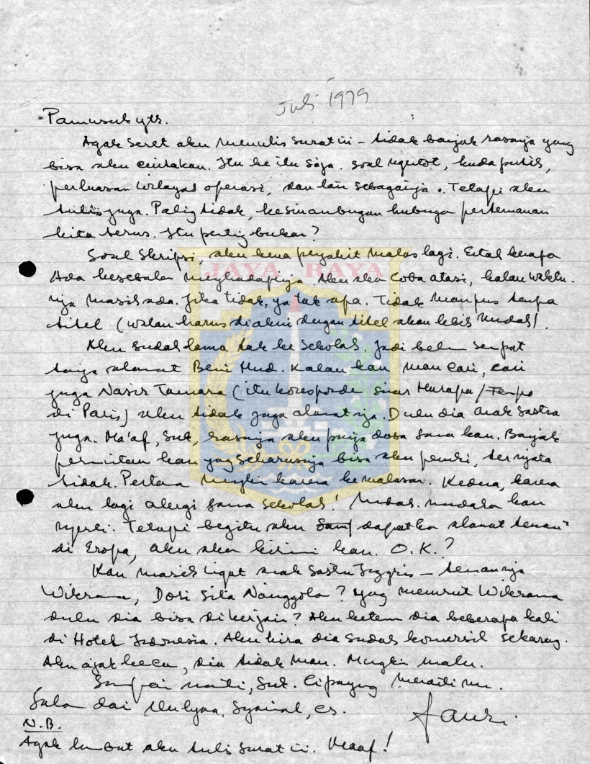 Juli 1979
Pamusuk yth.
Agak seret aku menulis surat ini - tidak banyak rasanya yang
bisa aku ceritakan. Itu ke itu saja. Soal ngutot, kuda putih,
perluasan wilayah operasi, dan lain sebagainya. Tetapi aku
tulis juga. Paling tidak, kesinambungan hubungan pertemanan
kita terus. Itu penting bukan?
Soal skripsi, aku kena penyakit malas lagi. Entah kenapa
Ada kesebalan menghadapinja. Akan aku coba atasi, kalau waktu
nja masih ada. Jika tidak, ya tak apa. Tidak mampus tanpa
titel (walau harus diakui dengan titel akan lebih mudah).
JAYA RAYA
Aku sudah lama tak ke sekolah. Jadi belum sempat
tanya alamat Beni Hud. Kalau kau mau cari, cari
juga Nasir Tamara (itu koresponden Sinar Harapan/Tempo
di Paris) aku tidak juga alamatnja. Dulu dia anak sastra
juga. Ma'af, Suk, rasanya aku punja dosa sama kau. Banjak
permintaan kau yang seharusnja bisa aku penuhi, ternyata
tidak. Pertama mungkin karena kemalasan. Kedua, karena
aku lagi alergi sama sekolah. Mudah-mudahan kau
ngerti. Tetapi begitu aku dapatkan alamat teman"
di Eropa, aku akan kirimi kau. O.K.?
Kau masih ingat anak Sastra Inggris - temannja
Wikrama, Dosi Sita Nanggola? Yang menurut Wikrama
dulu dia bisa dikerjain? Aku ketemu dia beberapa kali
di Hotel Indonesia. Aku kira dia sudah komersil sekarang.
Aku ajak kecu, dia tidak mau. Mungkin malu.
Sampai nanti, Suk. Cipayung menantimu.
Salam dari Mulyana, Syairal, cs.
Fauzi.
N.B.
Agak lambat aku tulis surat ini. Maaf!